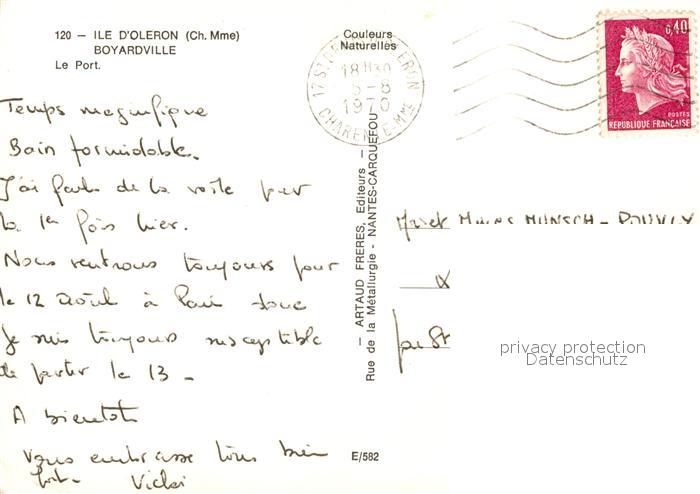 120 — ILE D'OLERON (Ch. Mme)
BOYARDVILLE
Le Port.
Couleurs
Naturelles
Temps magnifique
Bain formidable.
J'ai fait de la voile pour
la 1ère fois hier.
Nous rentrons toujours pour
le 12 août à Paris donc
Je suis toujours susceptible
de partir le 13 -
A bientôt
Vous embrasse tous bien
fort.
— ARTAUD FRERES, Editeurs —
Rue de la Métallurgie - NANTES-CARQUEFOU
E/582
18H30
5-8
1970
CHARENTE-MME
0,40
POSTES
REPUBLIQUE FRANÇAISE
MUNSCH -
par St
privacy protection
Datenschutz